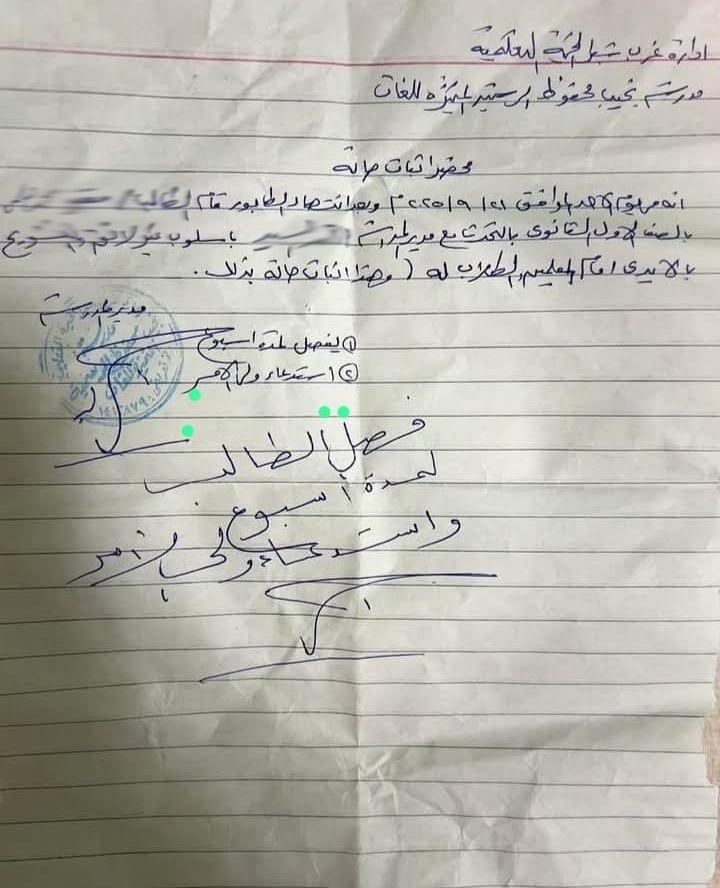 ادارة غرب شبرا الخيمة التعليمية
مدرسة نجيب محفوظ الرسمية المتميزة للغات
محضر اثبات حالة
انه فى يوم الاحد الموافق ٢١ / ٩ / ٢٠٢٥ م وبعد انتهاء الطابور قام الطالب /
بالصف الاول الثانوى بالتحدث مع مدير المدرسة باسلوب غير لائق والتلويح
بالايدى امام المعلمين والطلاب له ( وهذا اثبات حالة بذلك .
مدير المدرسة
① يفصل لمدة اسبوع
② استدعاء ولى الامر
فصل الطالب
لمدة أسبوع
واستدعاء ولى الأمر